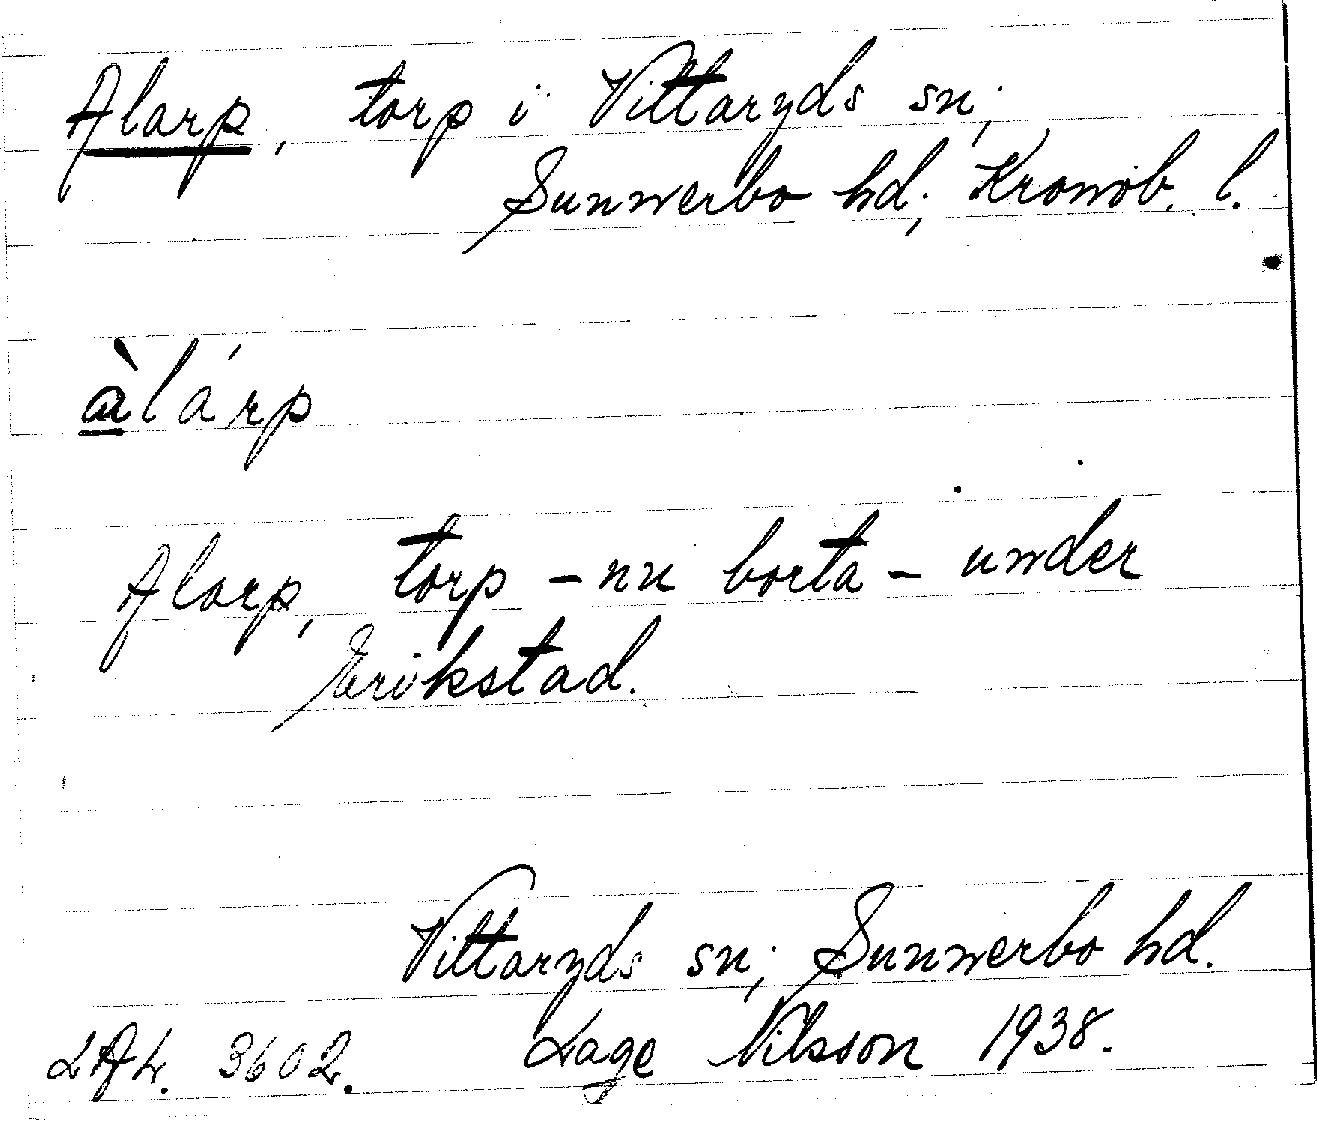 Alarp, torp i Vittaryds sn;
Sunnerbo hd; Kronob. l.
àlárp
Alarp, torp – nu borta – under
Erikstad.
Vittaryds sn; Sunnerbo hd.
LAL. 3602. Lage Nilsson 1938.